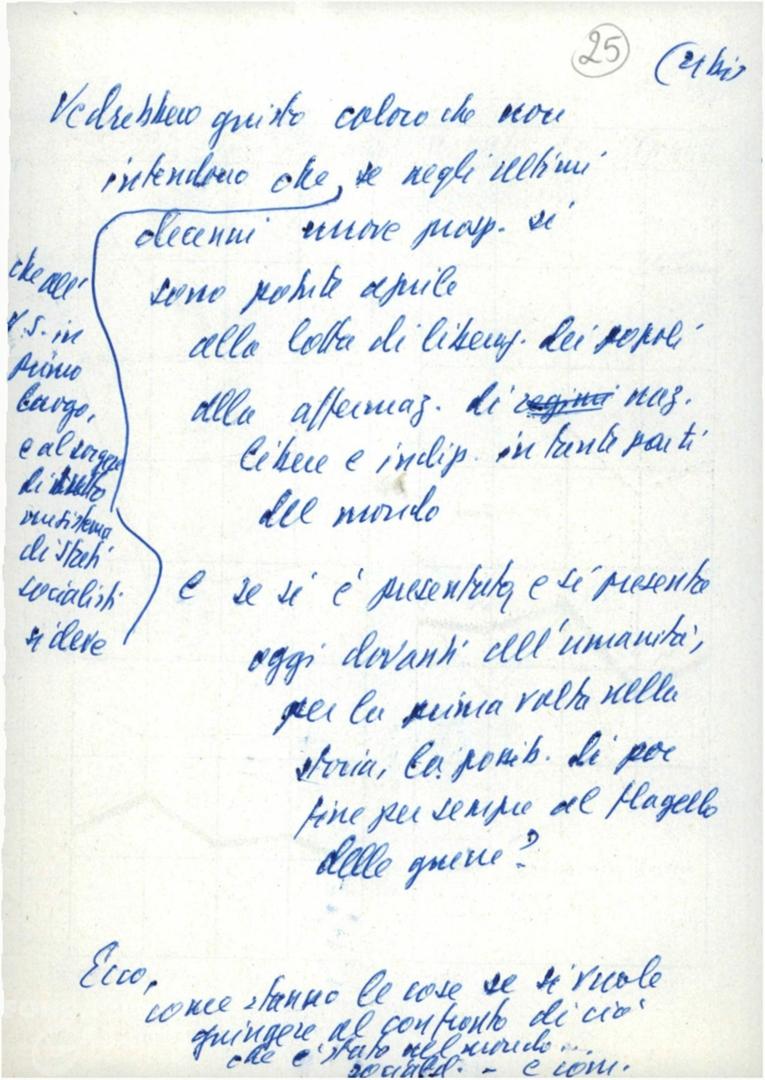 25
Vedrebbero giusto coloro che non
intendono che, se negli ultimi
decenni nuove prosp. si
sono potute aprire
alla lotta di liberaz. dei popoli
alla affermaz. di regimi naz.
libere e indip. in tante parti
del mondo
che all'
U.S. in
primo
luogo,
e al sorgere
di
un sistema
di stati
socialisti
si deve
e se si è presentata, e si presenta
oggi davanti all'umanità,
per la prima volta nella
storia, la possib. di por
fine per sempre al flagello
delle guerre?
Ecco,
come stanno le cose se si vuole
giungere al confronto di ciò
che c'è stato nel mondo...
sociald. - e com.